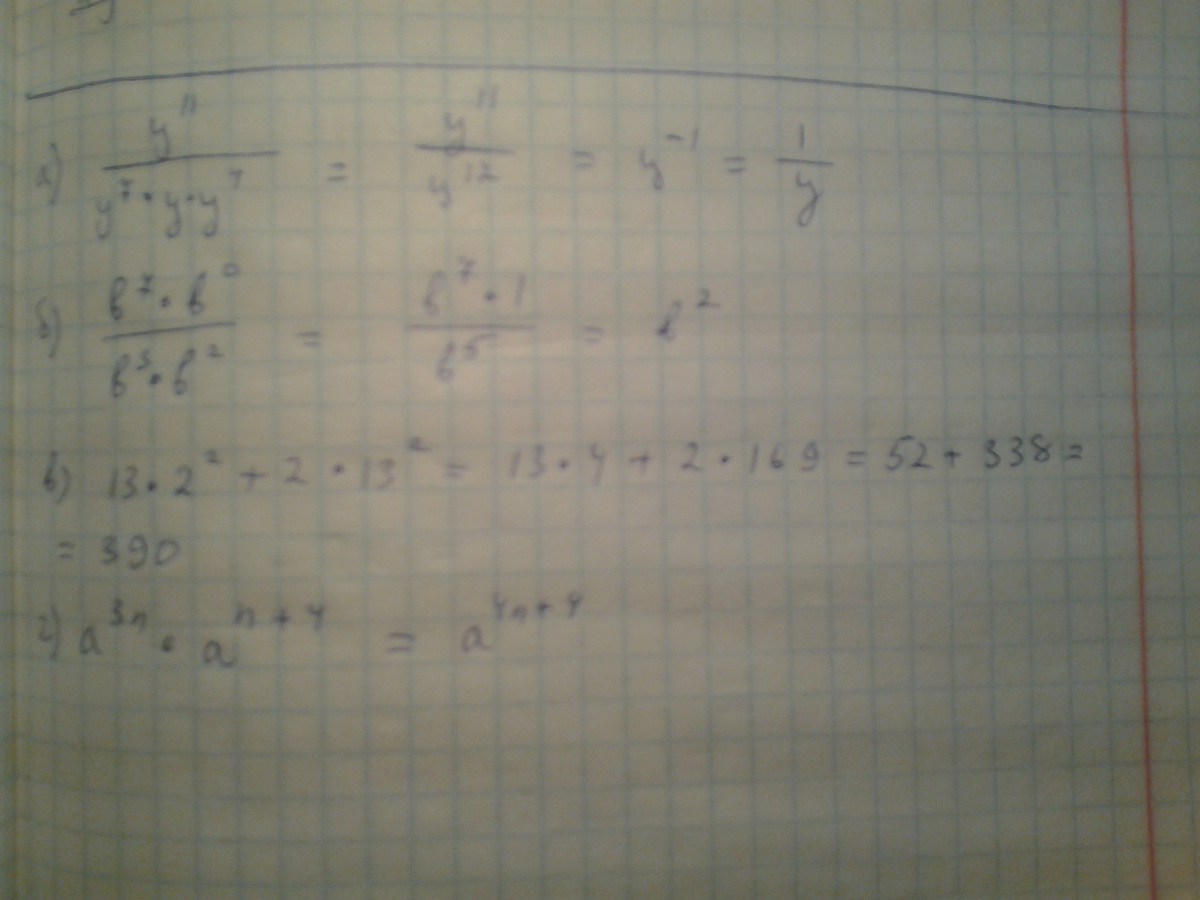 а) y¹¹ / (y⁷ · y · y⁴) = y¹¹ / y¹² = y⁻¹ = 1 / y
б) (в⁷ · в⁰) / (в³ · в²) = (в⁷ · 1) / в⁵ = в²
в) 13 · 2² + 2 · 13² = 13 · 4 + 2 · 169 = 52 + 338 =
= 390
г) a³ⁿ · aⁿ⁺⁴ = a⁴ⁿ⁺⁴